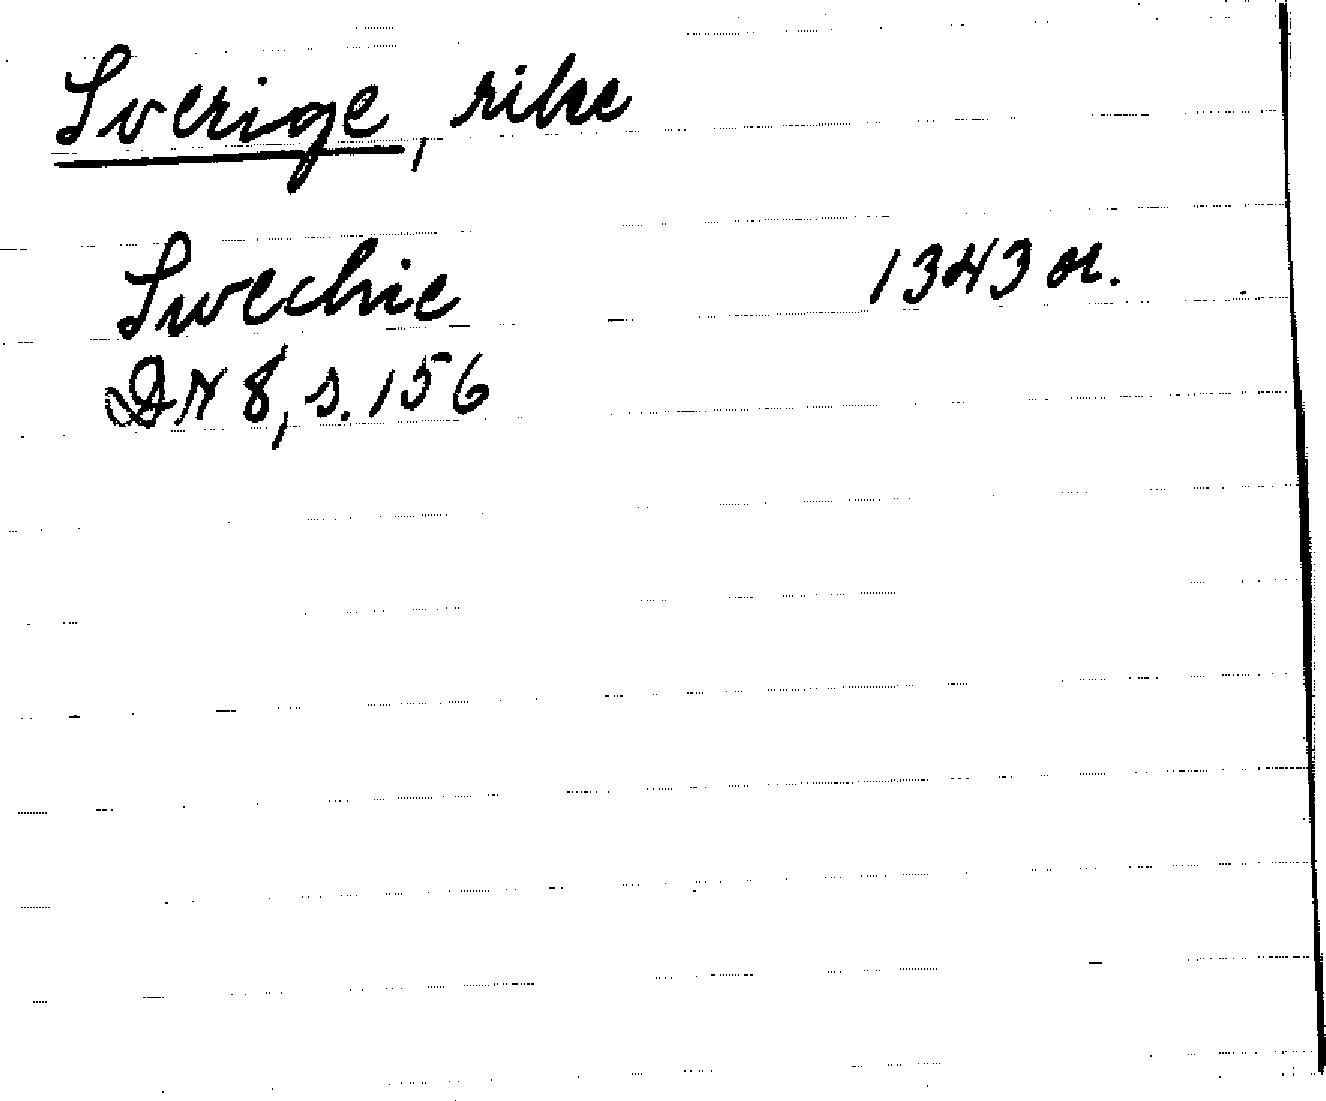 Sverige, rike
Swechie 1343 or.
DN 8, s. 156